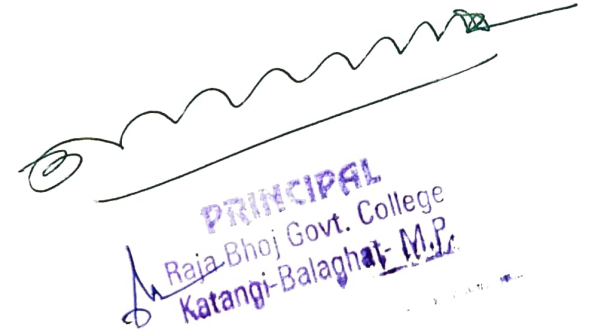 PRINCIPAL
Raja Bhoj Govt. College
Katangi-Balaghat- M.P.